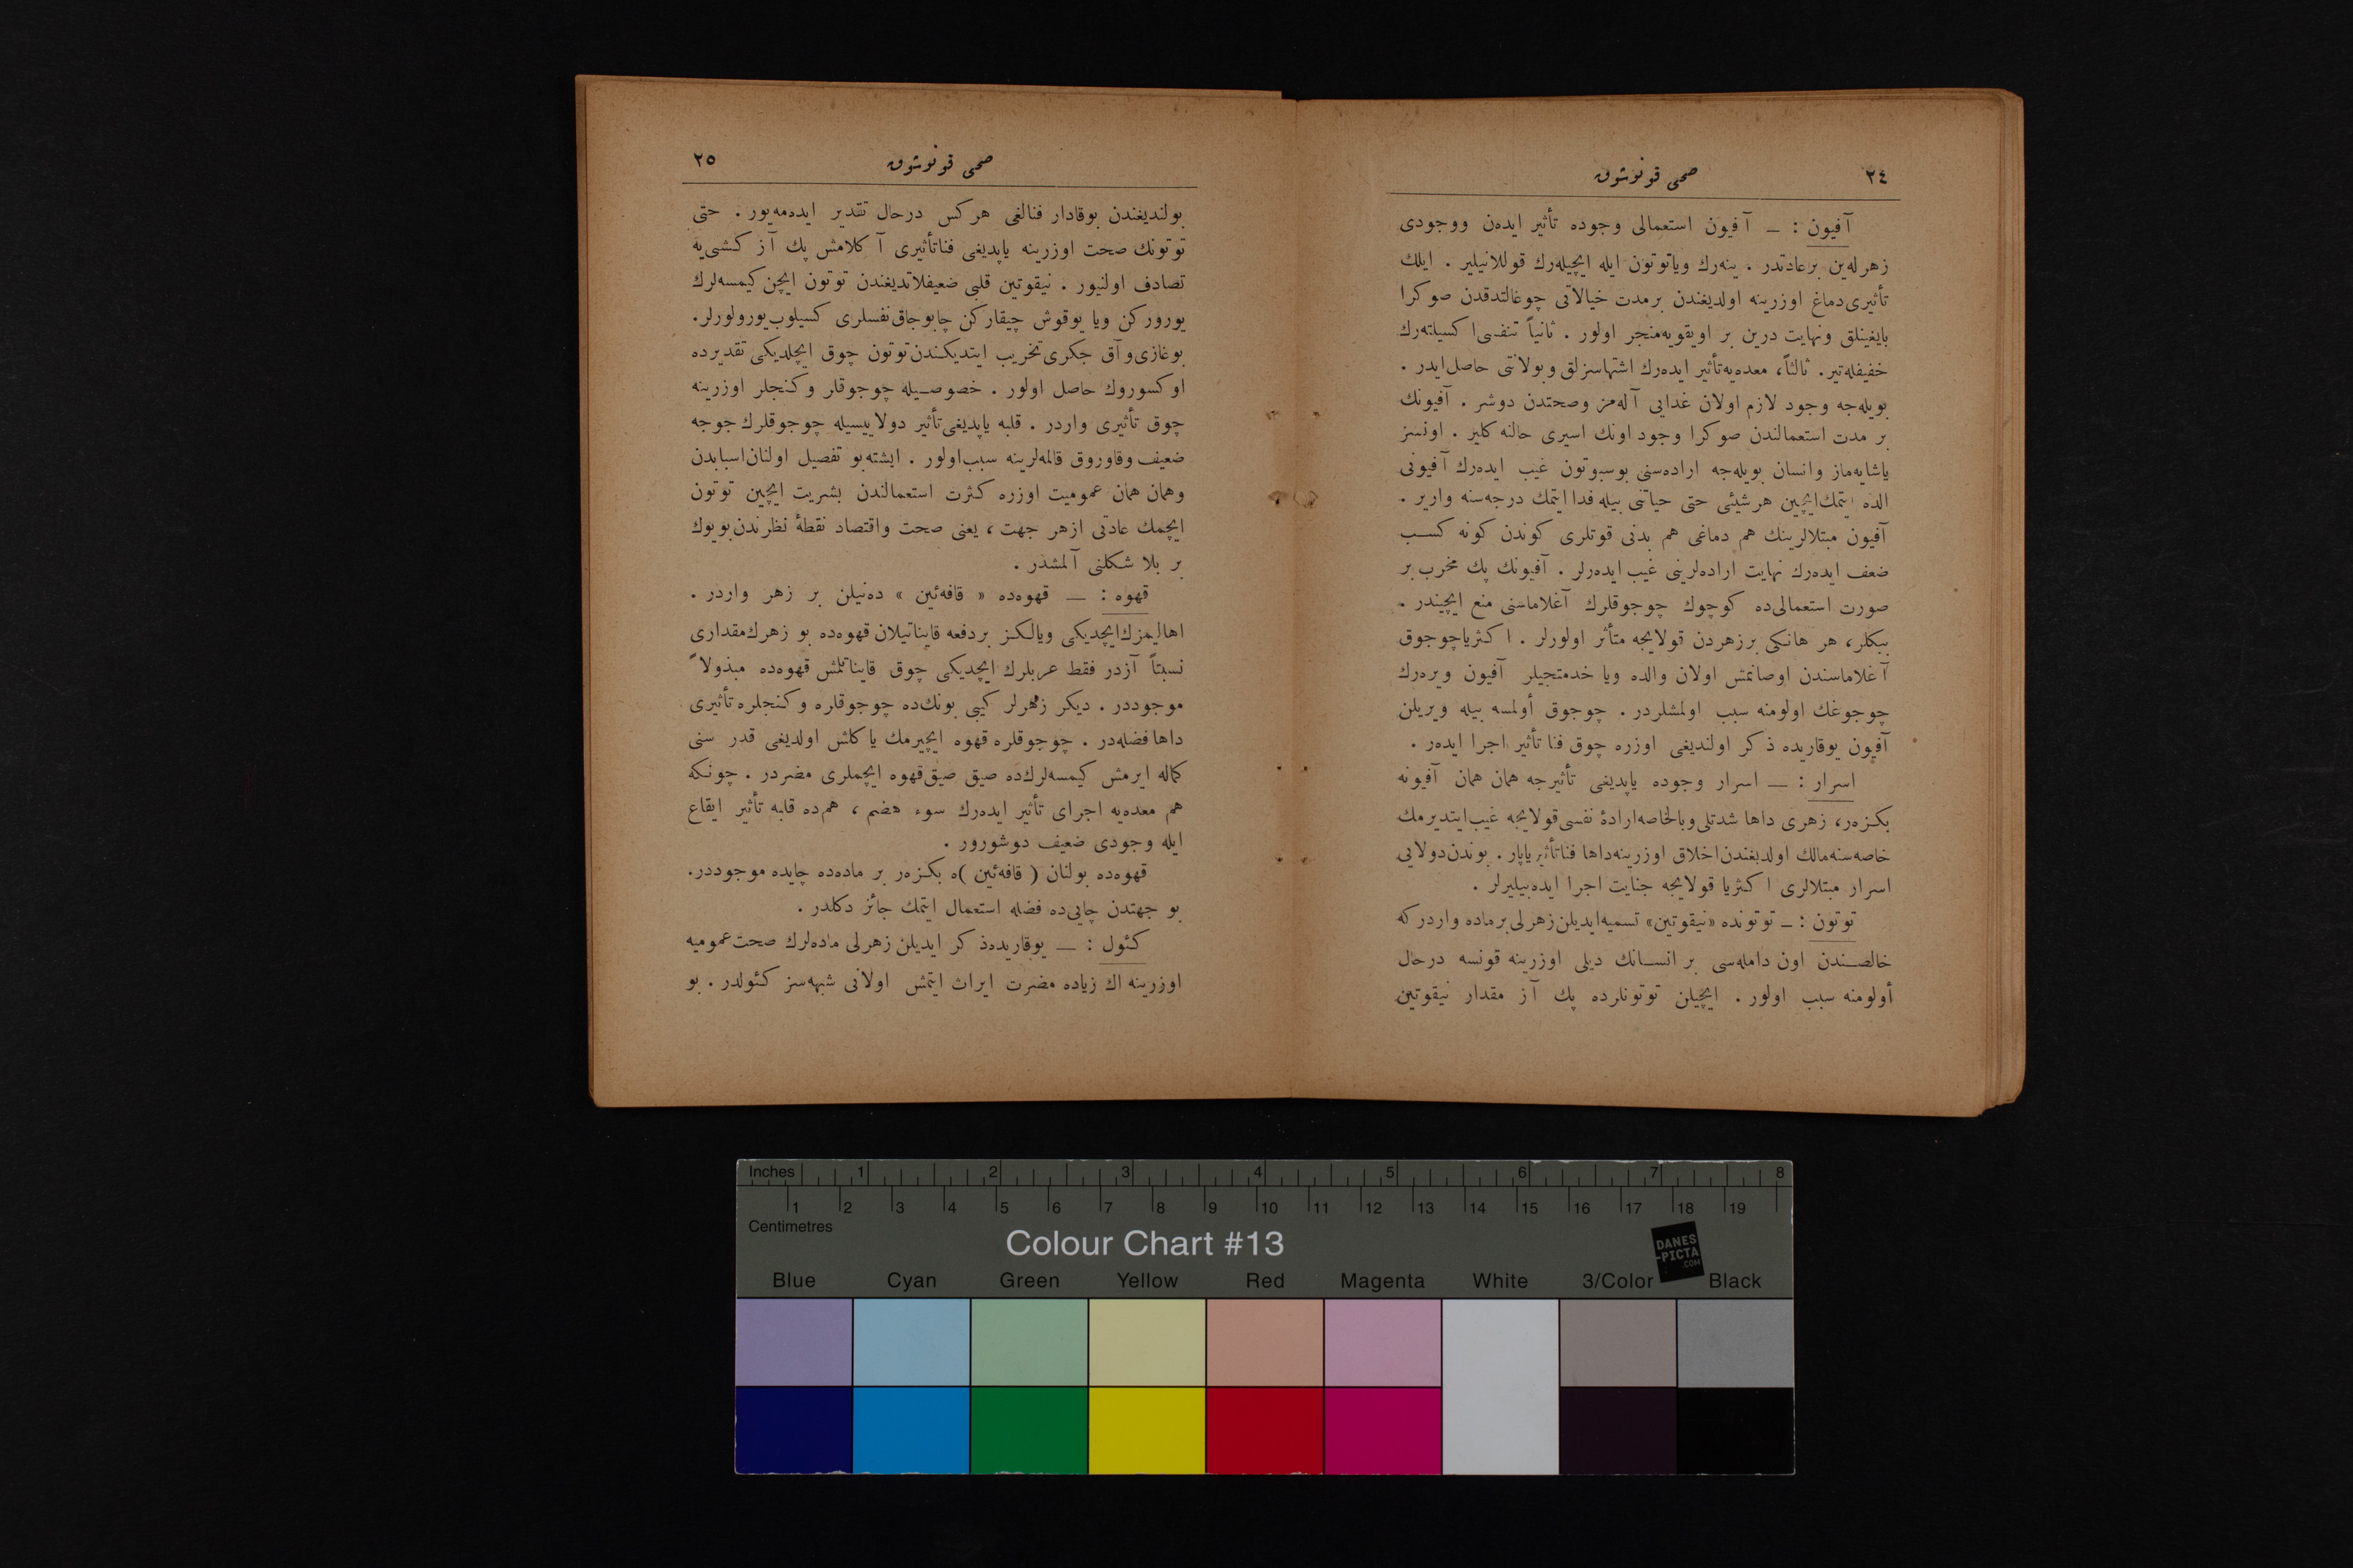 ٢٤
صحی قونوشوق
آفیون : — آفیون استعمالی وجوده تأثیر ایده‌ن ووجودی
زهرله‌ین برعادتدر . ینه‌رك ویاتوتون ایله ایچیله‌رك قوللانیلیر . ایلك
تأثیری‌دماغ اوزرینه اولدیغندن برمدت خیالاتی چوغالتدقدن صوکرا
بایغینلق ونهایت درین بر اویقویه‌منجر اولور . ثانیاً تنفسی اکسیلته‌رك
خفیفله‌تیر. ثالثاً، معده‌یه‌تأثیر ایده‌رك اشتهاسزلق وبولانتی حاصل‌ایدر .
بویله‌جه وجود لازم اولان غدایی آله‌مز وصحتدن دوشر . آفیونك
بر مدت استعمالندن صوکرا وجود اونك اسیری حالنه کلیر . اونسز
یاشایه‌ماز وانسان بویله‌جه اراده‌سنی بوسبوتون غیب ایده‌رك آفیونی
الده ایتمك‌ایچین هرشیئی حتی حیاتنی بیله فدا ایتمك درجه‌سنه واریر .
آفیون مبتلالرینك هم دماغی هم بدنی قوتلری کوندن کونه کسب
ضعف ایده‌رك نهایت اراده‌لرینی غیب ایده‌رلر . آفیونك پك مخرب بر
صورت استعمالی‌ده کوچوك چوجوقلرك آغلاماسنی منع ایچیندر .
ببکلر، هر هانکی برزهردن قولایجه متأثر اولورلر . اکثریاچوجوق
آغلاماسندن اوصانمش اولان والده ویا خدمتجیلر آفیون ویره‌رك
چوجوغك اولومنه سبب اولمشلردر . چوجوق أولمسه بیله ویریلن
آفیون یوقاریده ذکر اولندیغی اوزره چوق فنا تأثیر اجرا ایده‌ر .
اسرار : — اسرار وجوده یاپدیغی تأثیرجه همان همان آفیونه
بکزه‌ر، زهری داها شدتلی‌وبالخاصه‌ارادهٔ نفسی‌قولایجه غیب‌ایتدیرمك
خاصه‌سنه‌مالك اولدیغندن‌اخلاق اوزرینه‌داها فناتأثیر یاپار . بوندن‌دولایی
اسرار مبتلالری اکثریا قولایجه جنایت اجرا ایده‌بیلیرلر .
توتون : — توتونده «نیقوتین» تسمیه‌ایدیلن‌زهرلی برماده واردرکه
خالصندن اون دامله‌سی بر انسانك دیلی اوزرینه قونسه درحال
أولومنه سبب اولور . ایچیلن توتونلرده پك آز مقدار نیقوتین
٢٥
صحی قونوشوق
بولندیغندن بوقادار فنالغی هرکس درحال تقدیر ایده‌مه‌یور . حتی
توتونك صحت اوزرینه یاپدیغی فناتأثیری آکلامش پك آز کشی‌یه
تصادف اولنیور . نیقوتین قلبی ضعیفلاتدیغندن توتون ایچن‌کیمسه‌لرك
یورورکن ویا یوقوش چیقارکن چابوجاق‌نفسلری کسیلوب‌یورولورلر.
بوغازی‌وآق جکری‌تخریب ایتدیکندن‌توتون چوق ایچلدیکی تقدیرده
اوکسوروك حاصل اولور . خصوصیله چوجوقلر وکنجلر اوزرینه
چوق تأثیری واردر . قلبه یاپدیغی‌تأثیر دولاییسیله چوجوقلرك جوجه
ضعیف وقاوروق قالمه‌لرینه سبب‌اولور . ایشته‌بو تفصیل اولنان‌اسبابدن
وهمان همان عمومیت اوزره کثرت استعمالندن بشریت ایچین توتون
ایچمك عادتی ازهر جهت ، یعنی صحت واقتصاد نقطهٔ نظرندن‌بویوك
بر بلا شکلنی آلمشدر .
قهوه : — قهوه‌ده « قافه‌ئین » ده‌نیلن بر زهر واردر .
اهالیمزك‌ایچدیکی ویالکز بردفعه قایناتیلان قهوه‌ده بو زهرك‌مقداری
نسبتاً آزدر فقط عربلرك ایچدیکی چوق قایناتلمش قهوه‌ده مبذولاً
موجوددر . دیکر زهرلر کبی بونك‌ده چوجوقلره وکنجلره تأثیری
داها فضله‌در . چوجوقلره قهوه ایچیرمك یاکلش اولدیغی قدر سنی
کماله ایرمش کیمسه‌لرك‌ده صیق صیق‌قهوه ایچملری مضردر . چونکه
هم معده‌یه اجرای تأثیر ایده‌رك سوء هضم ، هم‌ده قلبه تأثیر ایقاع
ایله وجودی ضعیف دوشورور .
قهوه‌ده بولنان ( قافه‌ئین )ه بکزه‌ر بر ماده‌ده چایده موجوددر.
بو جهتدن چایی‌ده فضله استعمال ایتمك جائز دکلدر .
کئول : — یوقاریده‌ذکر ایدیلن زهرلی ماده‌لرك صحت‌عمومیه
اوزرینه اك زیاده مضرت ایراث ایتمش اولانی شبهه‌سز کئولدر . بو
Inches 1 2 3 4 5 6 7 8
1 2 3 4 5 6 7 8 9 10 11 12 13 14 15 16 17 18 19
Centimetres
Colour Chart #13
DANES
-PICTA
.COM
Blue Cyan Green Yellow Red Magenta White 3/Color Black